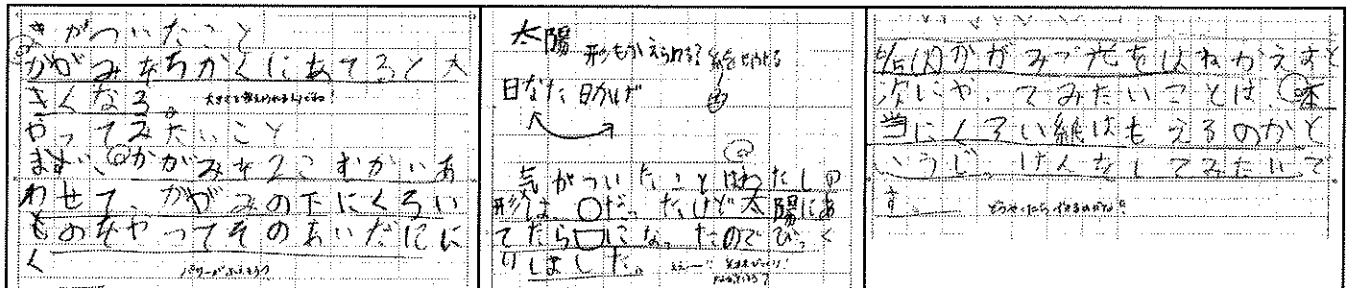 きがついたこと
かがみをちかくにあてると大
きくなる。
大きさも変えられるんだね!
やってみたいこと
まずい、かがみを2こむかいあ
わせて、かがみの下にくろい
ものをやってそのあいだにに
く
パワーがふえそう?
太陽
形もかえられる?
日なた 日かげ
気がついたことはわたしの
形は、○だったけど太陽にあ
てたら□になったのでびっく
りしました。
かがみで光をはねかえすと
次にやってみたいことは、本
当にくろい紙はもえるのかと
いうじっけんをしてみたいで
す。
どうやったらできるのかな?